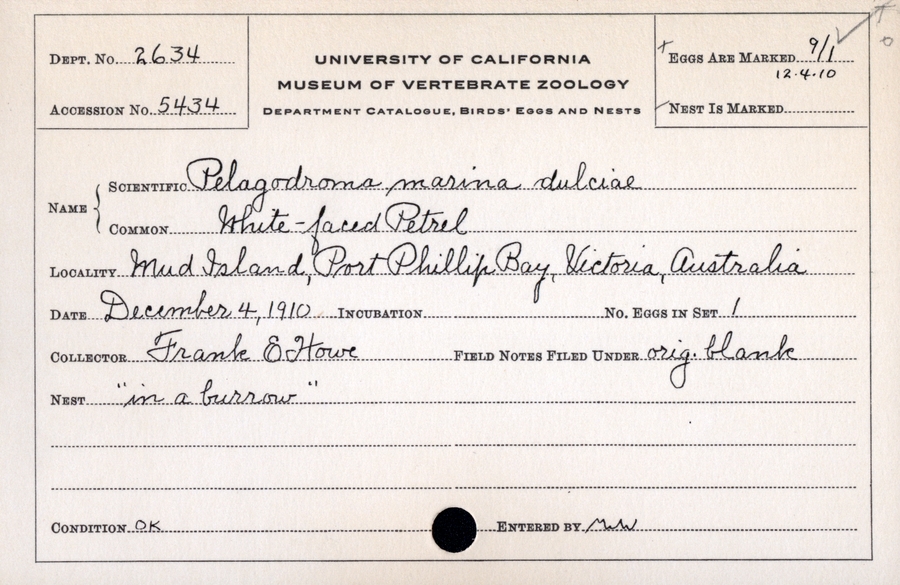 Dept. No. 2634
Accession No. 5434
UNIVERSITY OF CALIFORNIA
MUSEUM OF VERTEBRATE ZOOLOGY
Department Catalogue, Birds' Eggs and Nests
Eggs Are Marked 9/1
12.4.10
Nest Is Marked
Name { Scientific Pelagodroma marina dulciae
Common White-faced Petrel
Locality Mud Island, Port Phillip Bay, Victoria, Australia
Date December 4, 1910 Incubation No. Eggs in Set 1
Collector Frank E Howe Field Notes Filed Under orig. blank
Nest "in a burrow"
Condition OK Entered by